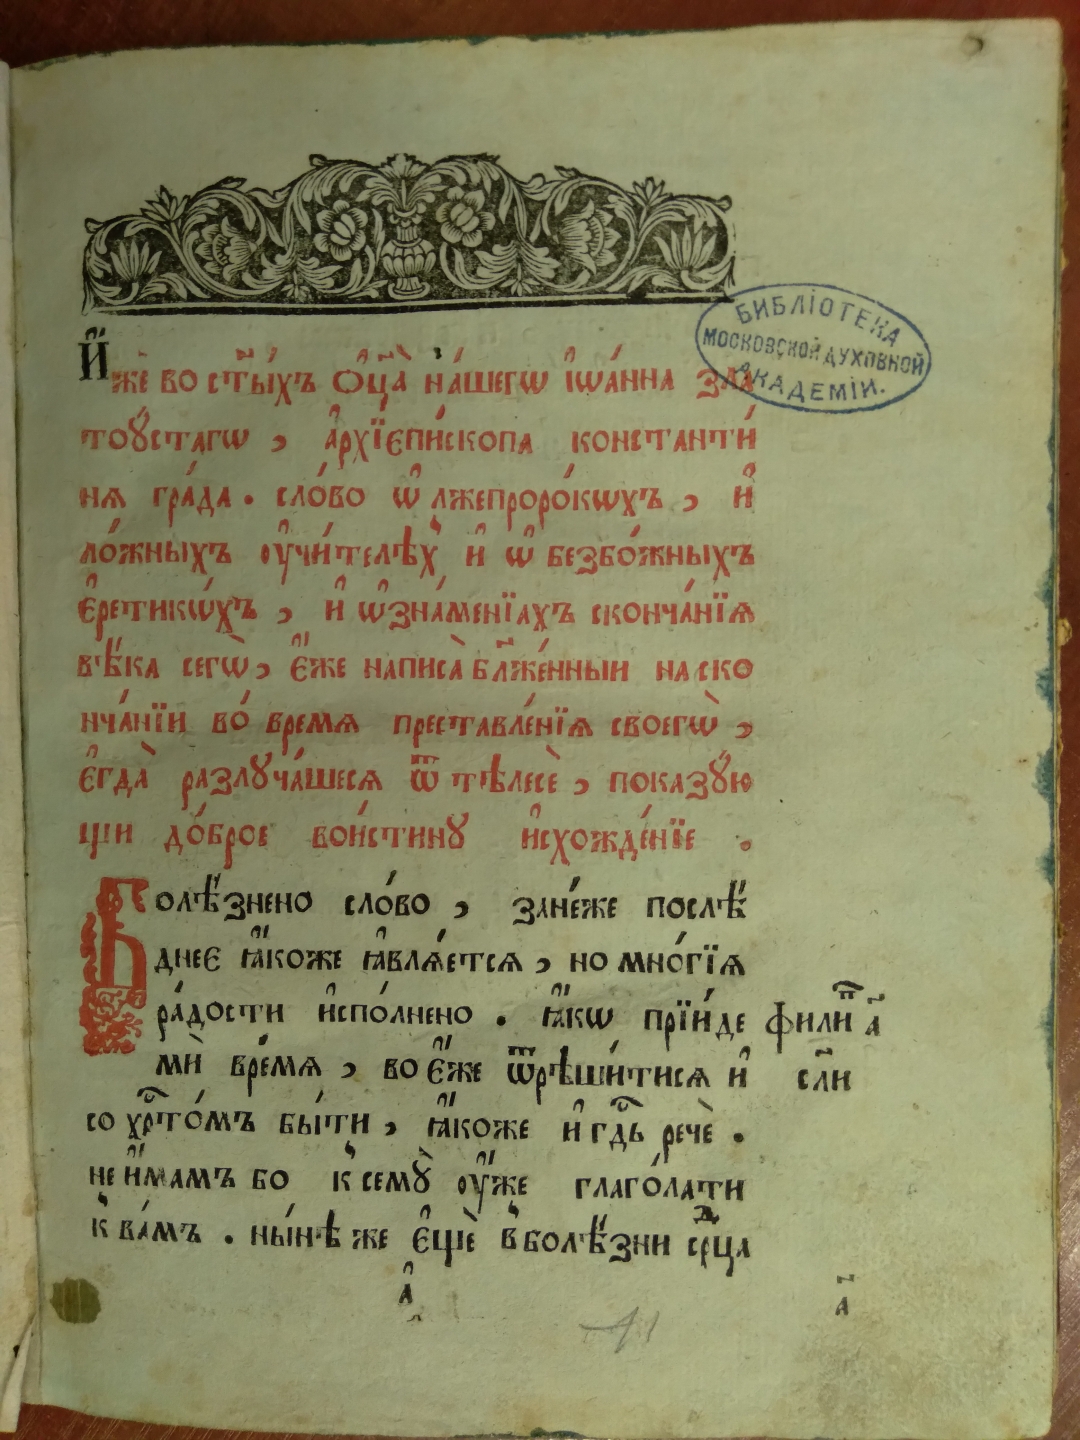 БИБЛІОТЕКА
МОСКОВСКОЙ ДУХОВНОЙ
АКАДЕМІИ.
И҆́же во ст҃ы́хъ ѻ҆ц҃а̀ на́шегѡ і҆ѡа́нна зла
тоу́стагѡ , а҆рхїєпи́скопа константи́
нѧ гра́да . сло́во ѡ҆ лжепроро́кѡхъ , и҆
ло́жныхъ ᲂу҆чи́телѣх и҆ ѡ҆ безбо́жныхъ
є҆ретикѡ́хъ , и҆ ѡ҆ зна́менїахъ сконча́нїѧ
вѣ́ка сегѡ̀ , є҆́же написа̀ бл҃же́нныи на ско
нча́нїи во́ времѧ преставле́нїѧ своегѡ̀ ,
є҆гда̀ разлꙋча́шесѧ ѿ тѣлесѐ , показꙋ́ю
щи до́брое вои́стинꙋ и҆схожде́нїе .
Болѣ́знено сло́во , зане́же послѣ́
днеє ꙗ҆́коже ꙗ҆влѧ́етсѧ , но мно́гїѧ
ра́дости и҆спо́лнено . ꙗ҆́кѡ прїи́де
мѝ вре́мѧ , во є҆́же ѿрѣши́тисѧ и҆
со хрⷭ҇то́мъ бы́ти , ꙗ҆́коже и҆ гдⷭ҇ь речѐ .
не и҆́мамъ бо к семꙋ̀ ᲂу҆́же глаго́лати
к ва́мъ . ны́нѣ же є҆щѐ в болѣ́зни срⷣца
филиⷫ҇ а҃
сл҃и
а҆
а҃